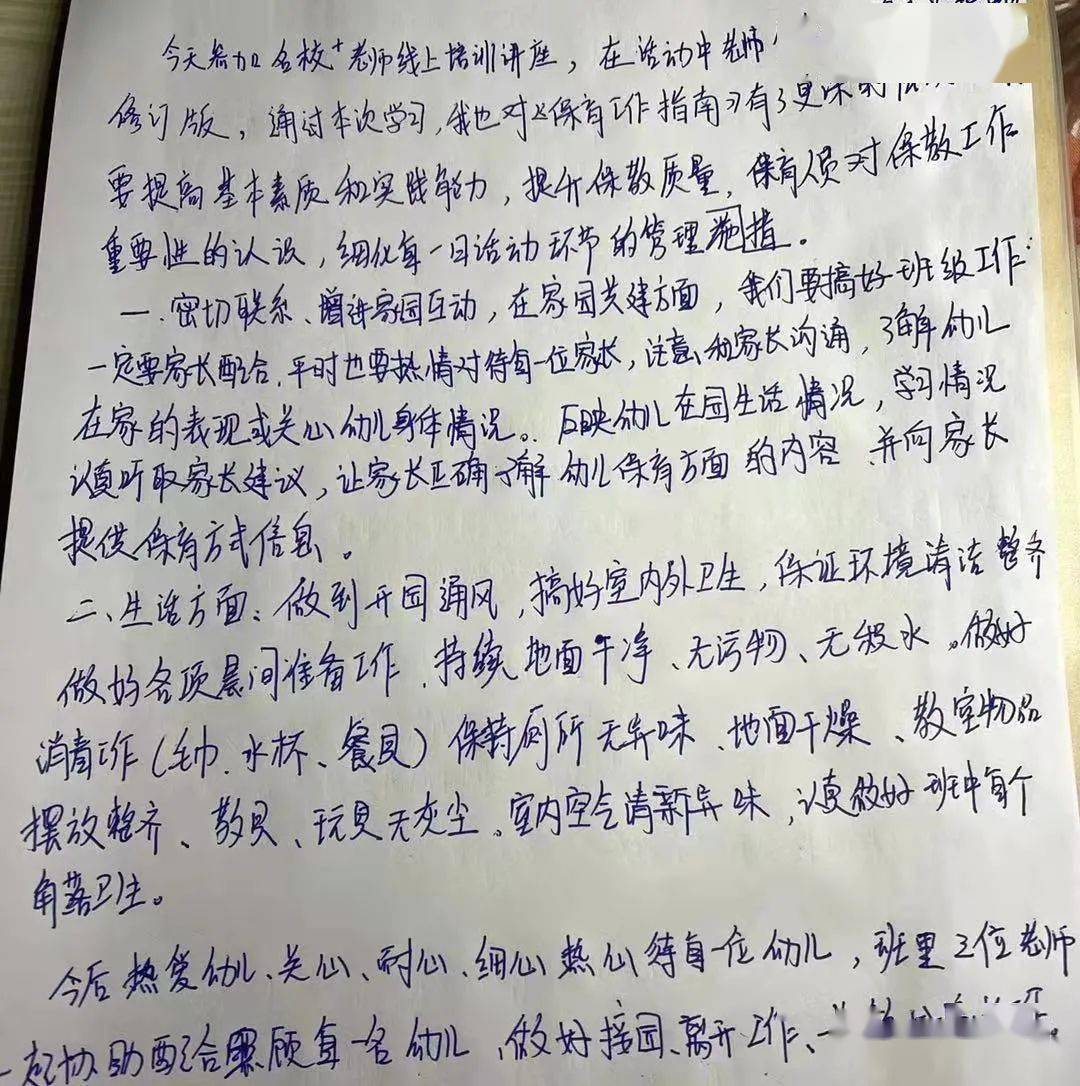 今天参加名校+老师线上培训讲座，在活动中老师
修订版，通过本次学习，我也对《保育工作指南》有了更
要提高基本素质和实践能力，提升保教质量，保育人员对保教工作
重要性的认识，细化每一日活动环节的管理措。
一、密切联系、增进家园互动，在家园共建方面，我们要搞好班级工作：
一定要家长配合，平时也要热情对待每一位家长，注意和家长沟通，了解幼儿
在家的表现或关心幼儿身体情况。反映幼儿在园生活情况，学习情况
认真听取家长建议，让家长正确了解幼儿保育方面的内容，并向家长
提供保育方式信息。
二、生活方面：做到开园通风，搞好室内外卫生，保证环境清洁整齐
做好各项晨间准备工作，持续地面干净、无污物、无积水。做好
消毒工作（毛巾、水杯、餐具）保持厕所无异味、地面干燥、教室物品
摆放整齐、教具、玩具无灰尘。室内空气清新异味，认真做好班中每个
角落卫生。
今后热爱幼儿、关心、耐心、细心热心待每一位幼儿，班里三位老师
一起协助配合照顾每一名幼儿，做好接园、离开工作、